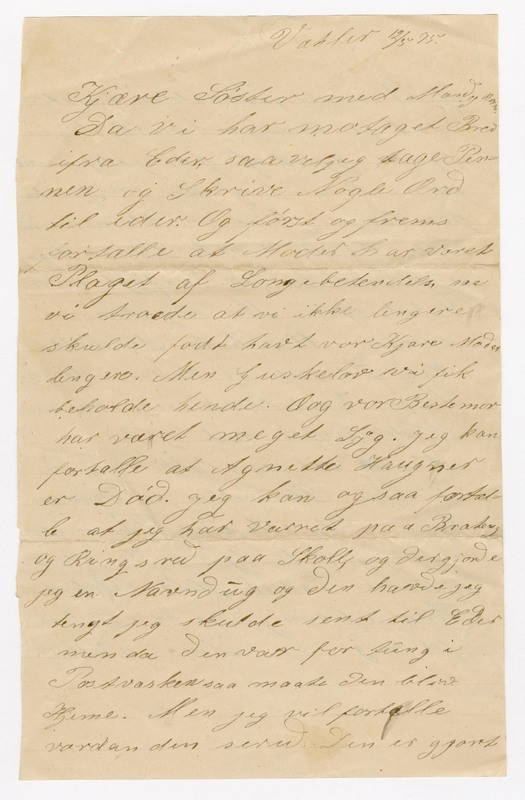 Vahler 12/5 95.
Kjære Søster med Mand og Børn.
Da vi har motaget Bred
ifra Eder, saa vel jeg tage Pen-
nen og Skrive Nogle Ord
til eder. Og først og frems
fortalle at Moder har været
Plaget af Longebetendels,
vi troede at vi ikke lengere
skulde fodt havt vor Kjære Moder
lengere. Men Guskelov vi fik
beholde hende. Og vor Bestemor
har været meget Syg. jeg kan
fortalle at Agnette Haugner
er Død. jeg kan ogsaa fortel-
le at jeg har værret paa Braten,
og Ringsrud paa Skole, og der gjorde
jeg en Navndug og den havde jeg
tengt jeg skulde sent til Eder
men da den var for tung i
Postvasken saa maate den blive
Hjeme. Men jeg vil fortelle
vordan den serud. Den er gjort